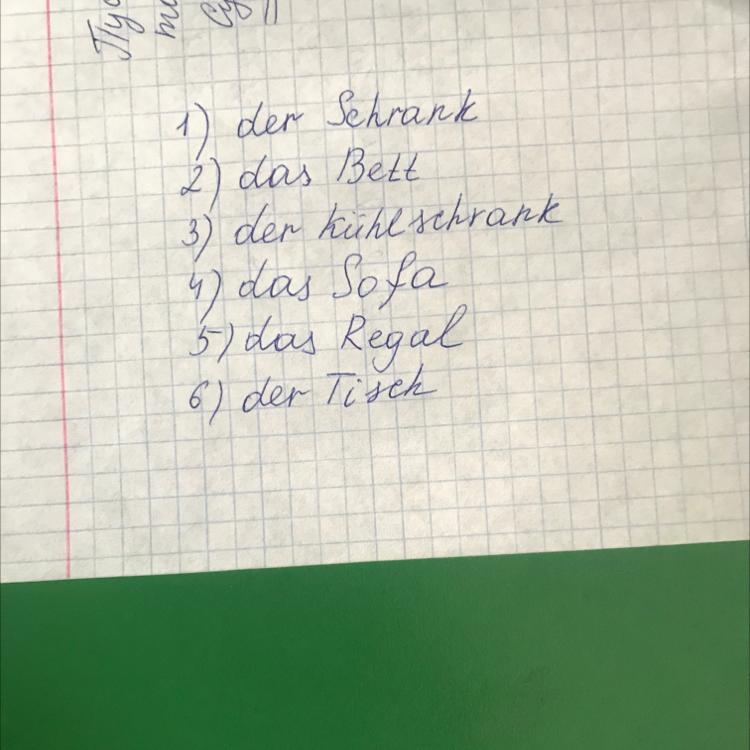 1) der Schrank
2) das Bett
3) der Kühlschrank
4) das Sofa
5) das Regal
6) der Tisch